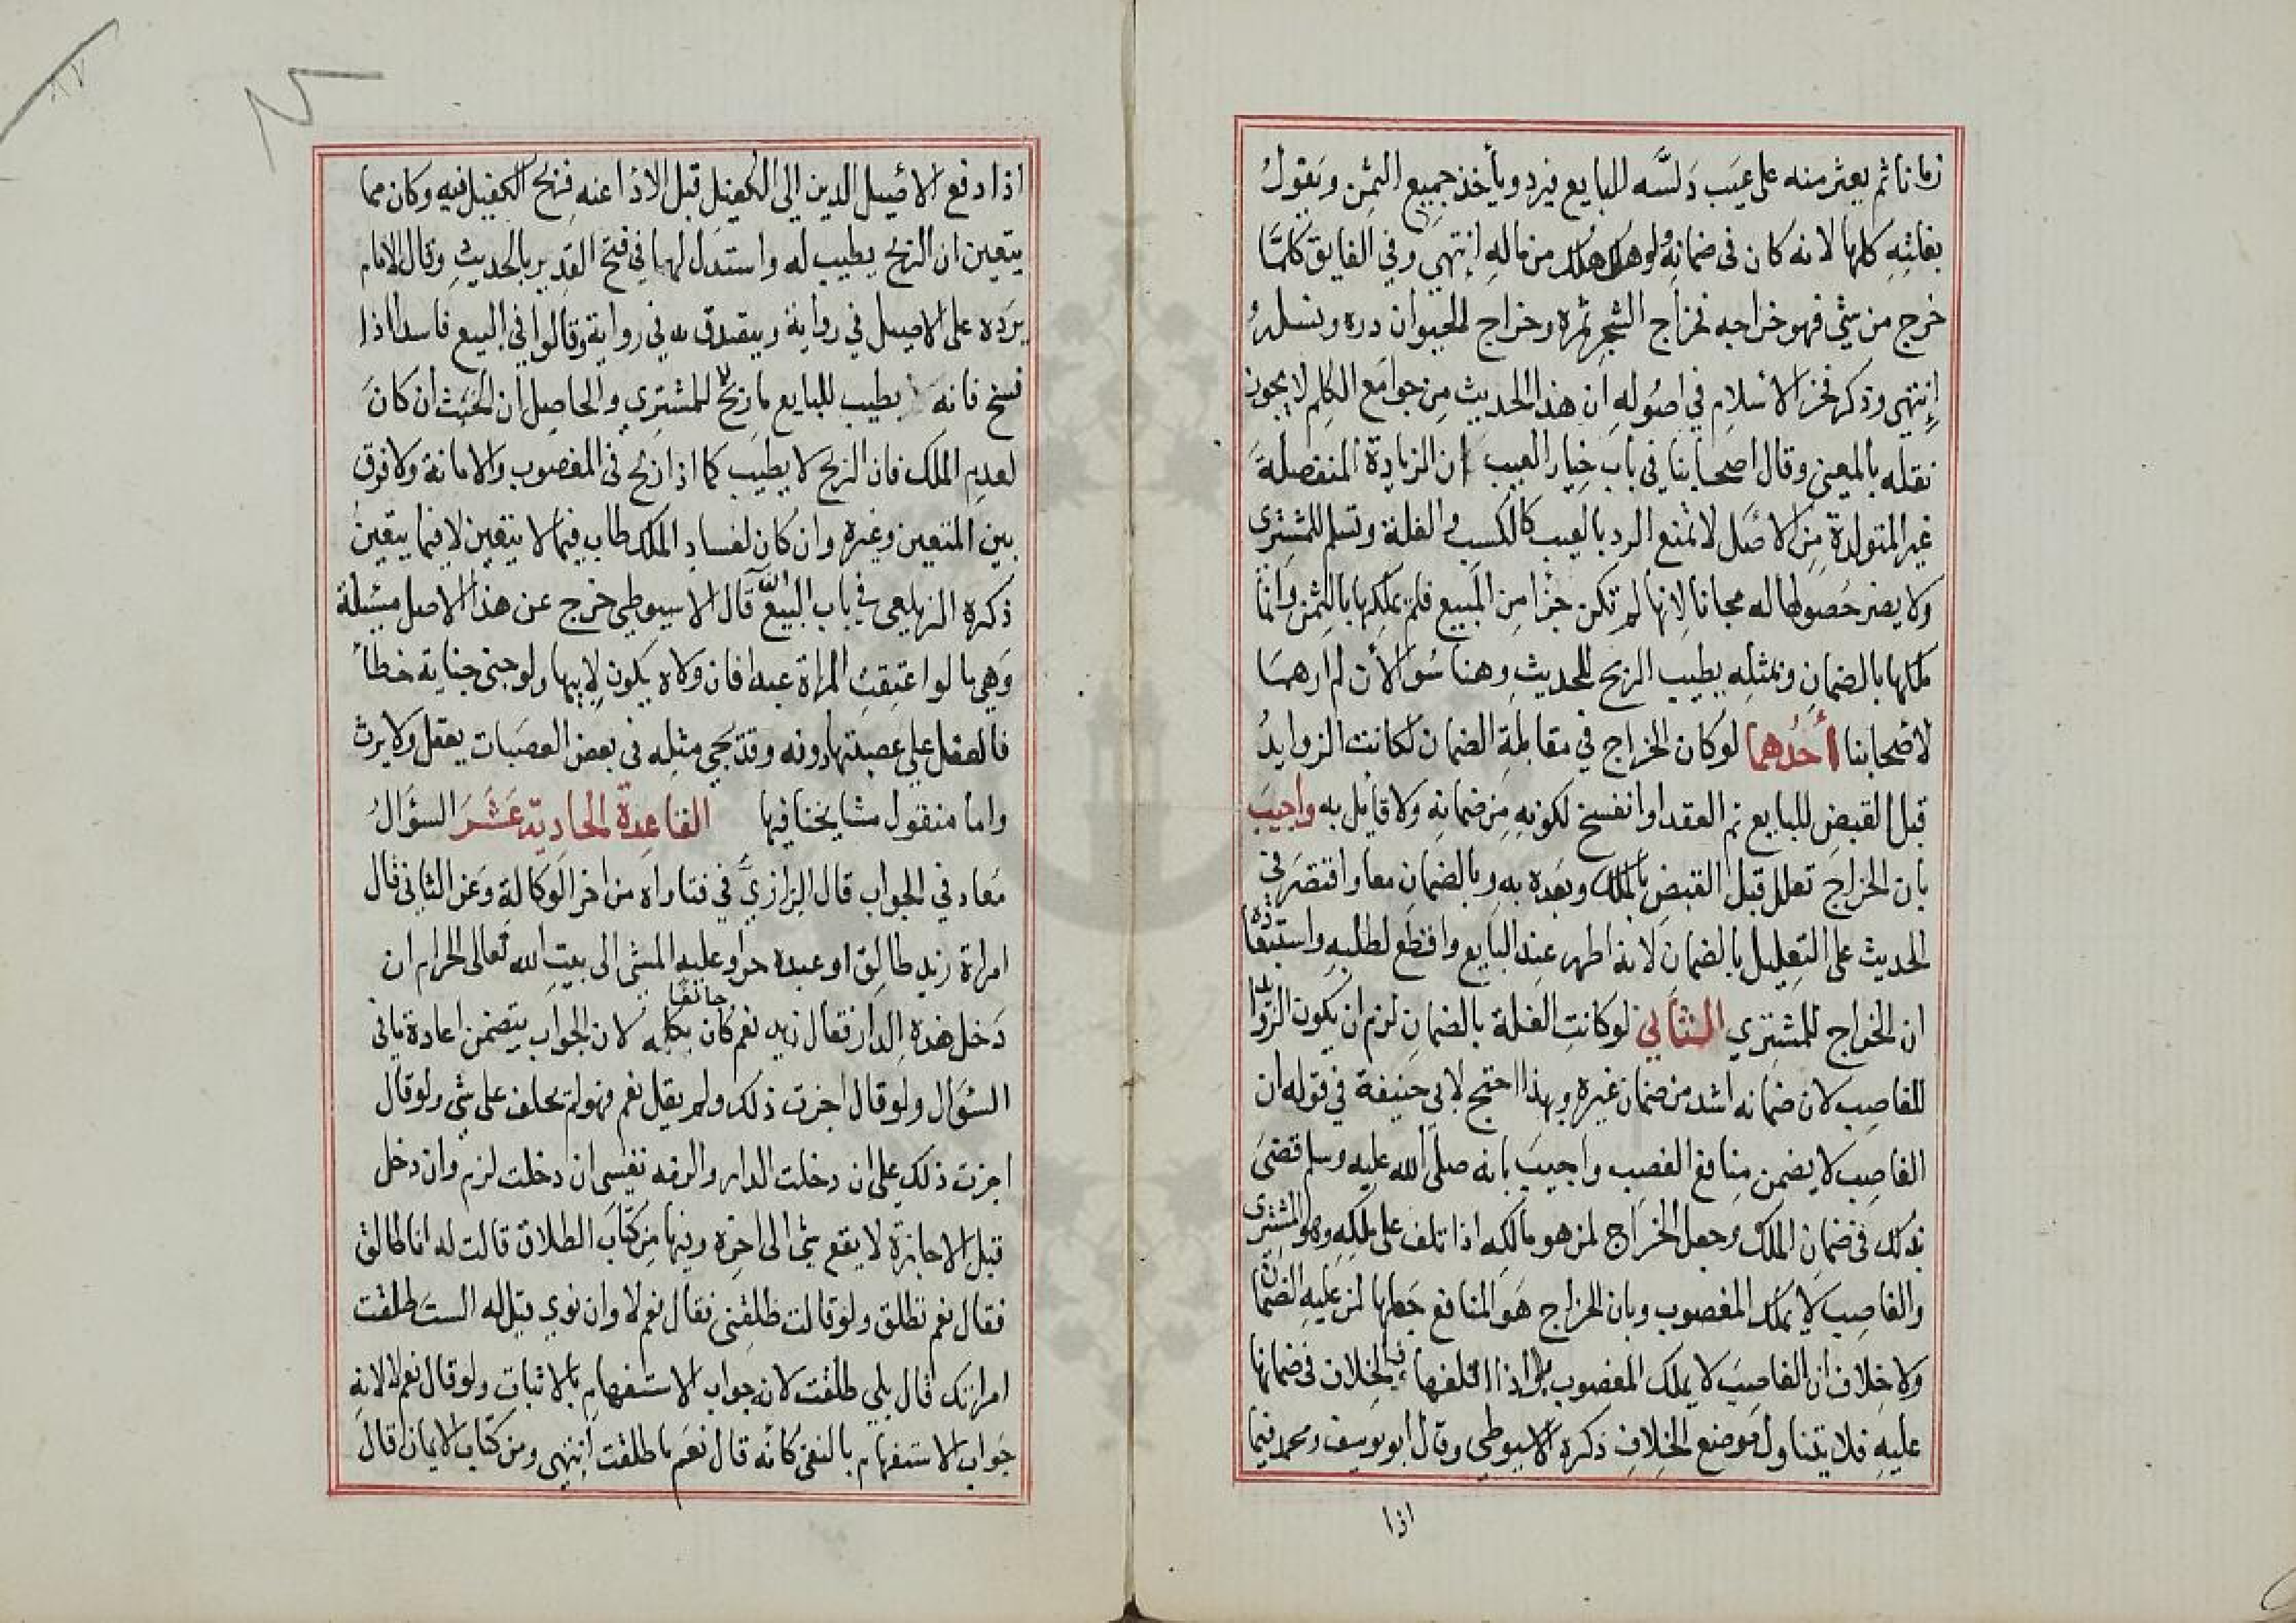 زمانا ثم يعثر منه على عيب دلسه البايع فيرد ويأخذ جميع الثمن ويفول
بغلته كلها لانه كان في ضمانه ولو هلك هلك من ماله انتهى وفي الفايق كلما
خرج من شئ فهو خراجه فخراج الشجر ثمره وخراج الحيوان دره ونسله
انتهى وذكر فخر الاسلام في اصوله ان هذا الحديث من جوامع الكلم لا يجوز
نقله بالمعنى وقال اصحابنا في باب خيار العيب ان الزيادة المنفصلة
غير المتولدة من الاصل لا تمنع الرد بالعيب كالكسب والغلة وتسلم للمشترى
ولا يضر حصولها له مجانا لانها لم تكن جزا من المبيع فلم يملكها بالثمن وانما
ملكها بالضمان وبمثله يطيب الربح للحديث وهنا سؤالان لم ارهما
لاصحابنا أحدهما لو كان الخراج في مقابلة الضمان لكانت الزوايد
قبل القبض للبايع تم العقد او انفسخ لكونه من ضمانه ولا قايل به واجيب
بان الخراج تعلل قبل القبض بالملك وبعده به وبالضمان معا واقتصر في
الحديث على التعليل بالضمان لانه اظهر عند البايع واقطع لطلبه واستبعاده
ان الخراج للمشتري الثاني لو كانت الغلة بالضمان لزم ان يكون الزوايد
للغاصب لان ضمانه اشد من ضمان غيره وبهذا احتج لابي حنيفة في قوله ان
الغاصب لا يضمن منافع الغصب واجيب بانه صلى الله عليه وسلم قضى
بذلك في ضمان الملك وجعل الخراج لمن هو مالكه اذا تلف على ملكه وهو المشترى
والغاصب لا يملك المغصوب وبان الخراج هو المنافع جعلها لمن عليه الضمان
ولا خلاف ان الغاصب لا يملك المغصوب بل اذا اتلفها فالخلاف في ضمانها
عليه فلا يتناول موضع الخلاف ذكره الاسيوطي وقال ابو يوسف ومحمد فيما
اذا
اذا دفع الاصيل الدين الى الكفيل قبل الاداء عنه فربح الكفيل فيه وكان مما
يتعين ان الربح يطيب له واستدل لهما في فتح القدير بالحديث وقال الامام
يرده على الاصيل في رواية ويتصدق به في رواية وقالوا في البيع فاسدا اذا
فسخ فانه يطيب للبايع ما ربح لا للمشتري والحاصل ان الخبث ان كان
لعدم الملك فان الربح لا يطيب كما اذا ربح في المغصوب والامانة ولا فرق
بين المتعين وغيره وان كان لفساد الملك طاب فيما لا يتعين لا فيما يتعين
ذكره الزيلعي في باب البيع قال الاسيوطي خرج عن هذا الاصل مسئلة
وهي ما لو اعتقت المراة عبدا فان ولاه يكون لابنها ولو جنى جناية خطأ
فالعقل على عصبتها دونه وقد يجي مثله في بعض العصبات يعقل ولا يرث
واما منقول مشايخنا فيها القاعدة الحادية عشر السؤال
معاد في الجواب قال البزازي في فتاواه من اخر الوكالة وعن الثاني قال
امراة زيد طالق او عبده حر او عليه المشى الى بيت الله تعالى الحرام ان
دخل هذه الدار فقال زيد نعم كان حالفا بكله لان الجواب يتضمن اعادة ما في
السؤال ولو قال اجزت ذلك ولم يقل نعم فهو لم يحلف على شئ ولو قال
اجزت ذلك على ان دخلت الدار والزمه نفسي ان دخلت لزم وان دخل
قبل الاجازة لا يقع شئ الى اخره وفيها من كتاب الطلاق قالت له انا طالق
فقال نعم تطلق ولو قالت طلقني فقال نعم لا وان نوى قيل له الست طلقت
امراتك قال بلى طلقت لانه جواب الاستفهام بالاثبات ولو قال نعم لا لانه
جواب الاستفهام بالنفي كانه قال نعم ما طلقت انتهى ومن كتاب الايمان قال